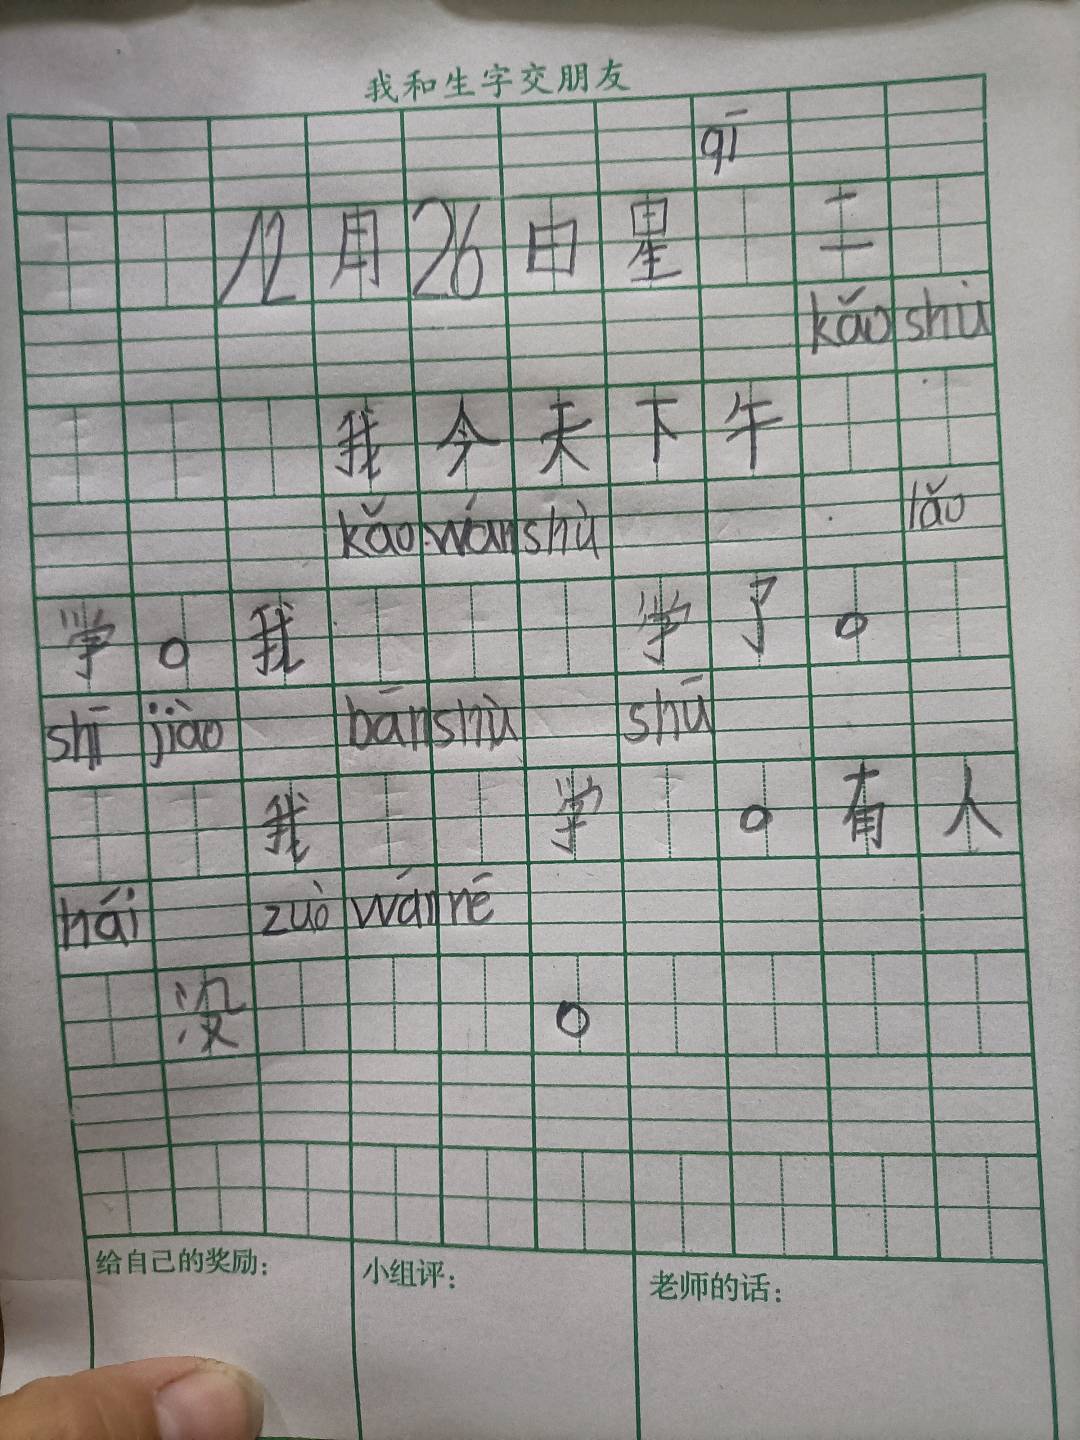 我和生字交朋友
qī
12月26日星 二
kǎo shù
我今天下午
kǎo wán shù lǎo
学。我 学了。
shī jiào bān shù shū
我 学 。有人
hái zuò wán nē
没 。
给自己的奖励：
小组评：
老师的话：